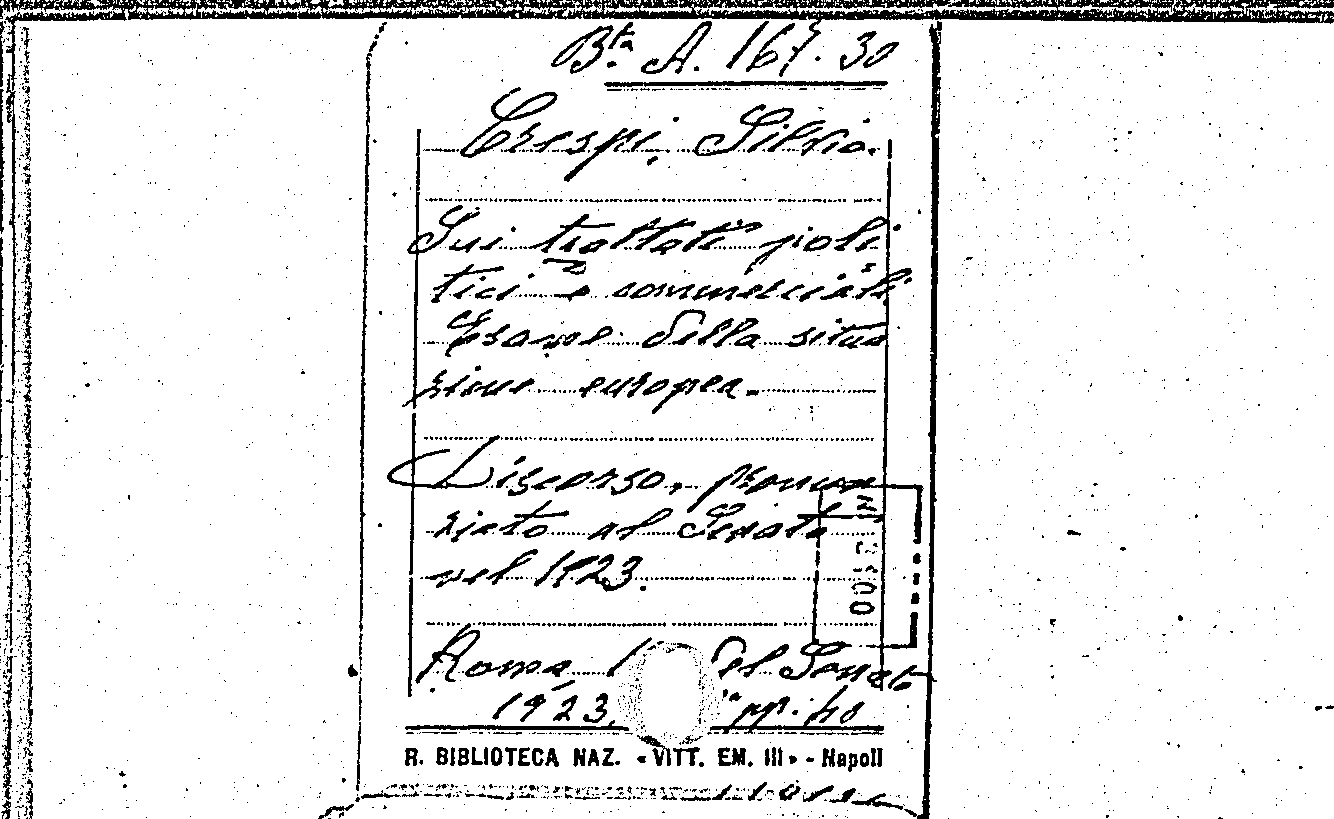 Bta A. 167. 30
Crespi, Silvio.
Sui trattati poli
tici e commerciali
Esame della situa
zione europea.
Discorso, pronun
ziato al Senato
nel 1923.
Roma del Senato
1923. pp. 40
R. BIBLIOTECA NAZ. « VITT. EM. III » - Napoli